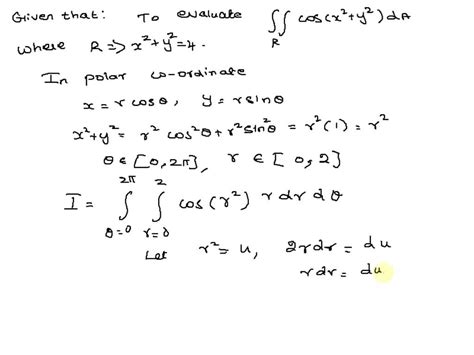 Given that: To evaluate ∬_R cos(x²+y²) dA
where R => x²+y²=4.
In polar co-ordinate
x = r cosθ, y = r sinθ
x²+y² = r² cos²θ + r² sin²θ = r²(1) = r²
θ ∈ [0, 2π], r ∈ [0, 2]
I = ∫_{θ=0}^{2π} ∫_{r=0}^{2} cos(r²) r dr dθ
Let r² = u, 2rdr = du
rdr = du